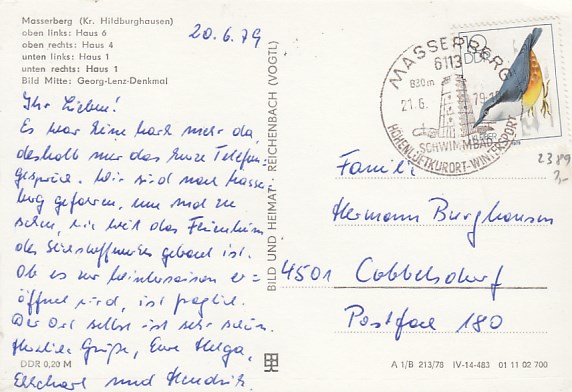 Masserberg (Kr. Hildburghausen)
oben links: Haus 6
oben rechts: Haus 4
unten links: Haus 1
unten rechts: Haus 1
Bild Mitte: Georg-Lenz-Denkmal
20.6.79
Ihr Lieben!
Es war keine Mark mehr da,
deshalb nur das kurze Telefon-
gespräch. Wir sind nach Masser-
berg gefahren, um mal zu
sehen, wie weit das Ferienheim
des Stickstoffwerkes gebaut ist.
Ob es zur Wintersaison er=
öffnet wird, ist fraglich.
Der Ort selbst ist sehr schön.
Herzliche Grüße, Eure Helga,
Ekkehart und Hendrik
DDR 0,20 M
BILD UND HEIMAT · REICHENBACH (VOGTL)
MASSERBERG
6113
830m
21.6.
79-18
SCHWIMMBAD
HÖHENLUFTKURORT-WINTERSPORT
10
DDR
2389
Familie
Hermann Burghausen
4501 Cobbelsdorf
Postfach 180
A 1/B 213/78 IV-14-483 01 11 02 700